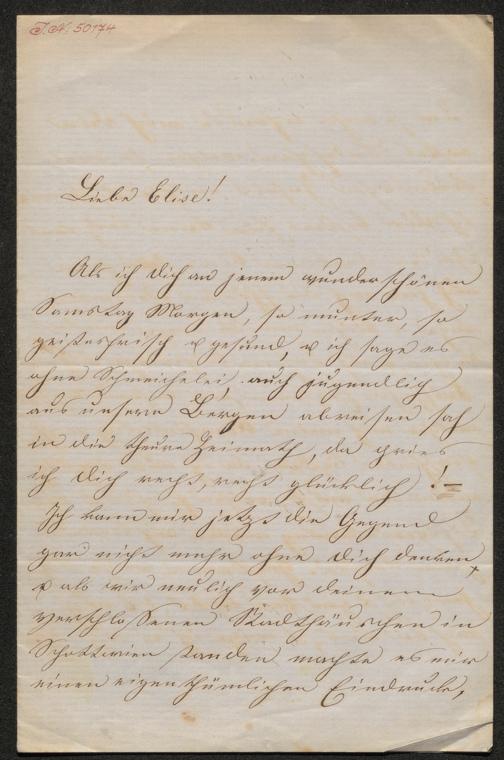 J.N. 50174
Liebe Elise!
Als ich dich an jenem wunderschönen
Samstag Morgen, so munter, so
geistesfrisch & gesund, & ich sage es
ohne Schmeichelei auch jugendlich
aus unsern Bergen abreisen sah
in die theure Heimath, da pries
ich dich recht, recht glücklich! –
Ich kann mir jetzt die Gegend
gar nicht mehr ohne dich denken,
& als wir neulich vor deinem
verschlossenen Stadthäuschen in
Schottwien standen machte es mir
einen eigenthümlichen Eindruck,